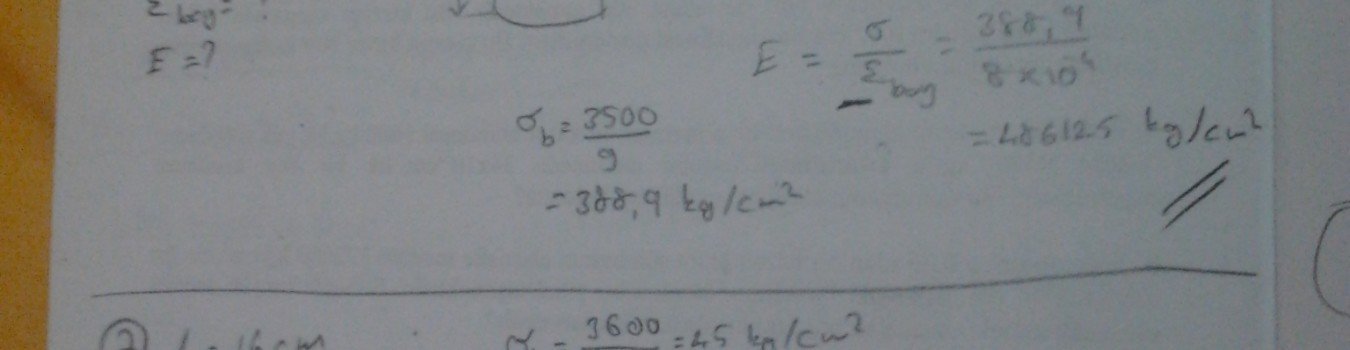 ε boy = ?
E = ?
E = σ / ε boy = 388,9 / 8×10⁻⁴
= 486125 kg/cm²
σb = 3500 / 9
= 388,9 kg/cm²
② = 16 cm
= 3600 = 45 kg/cm²